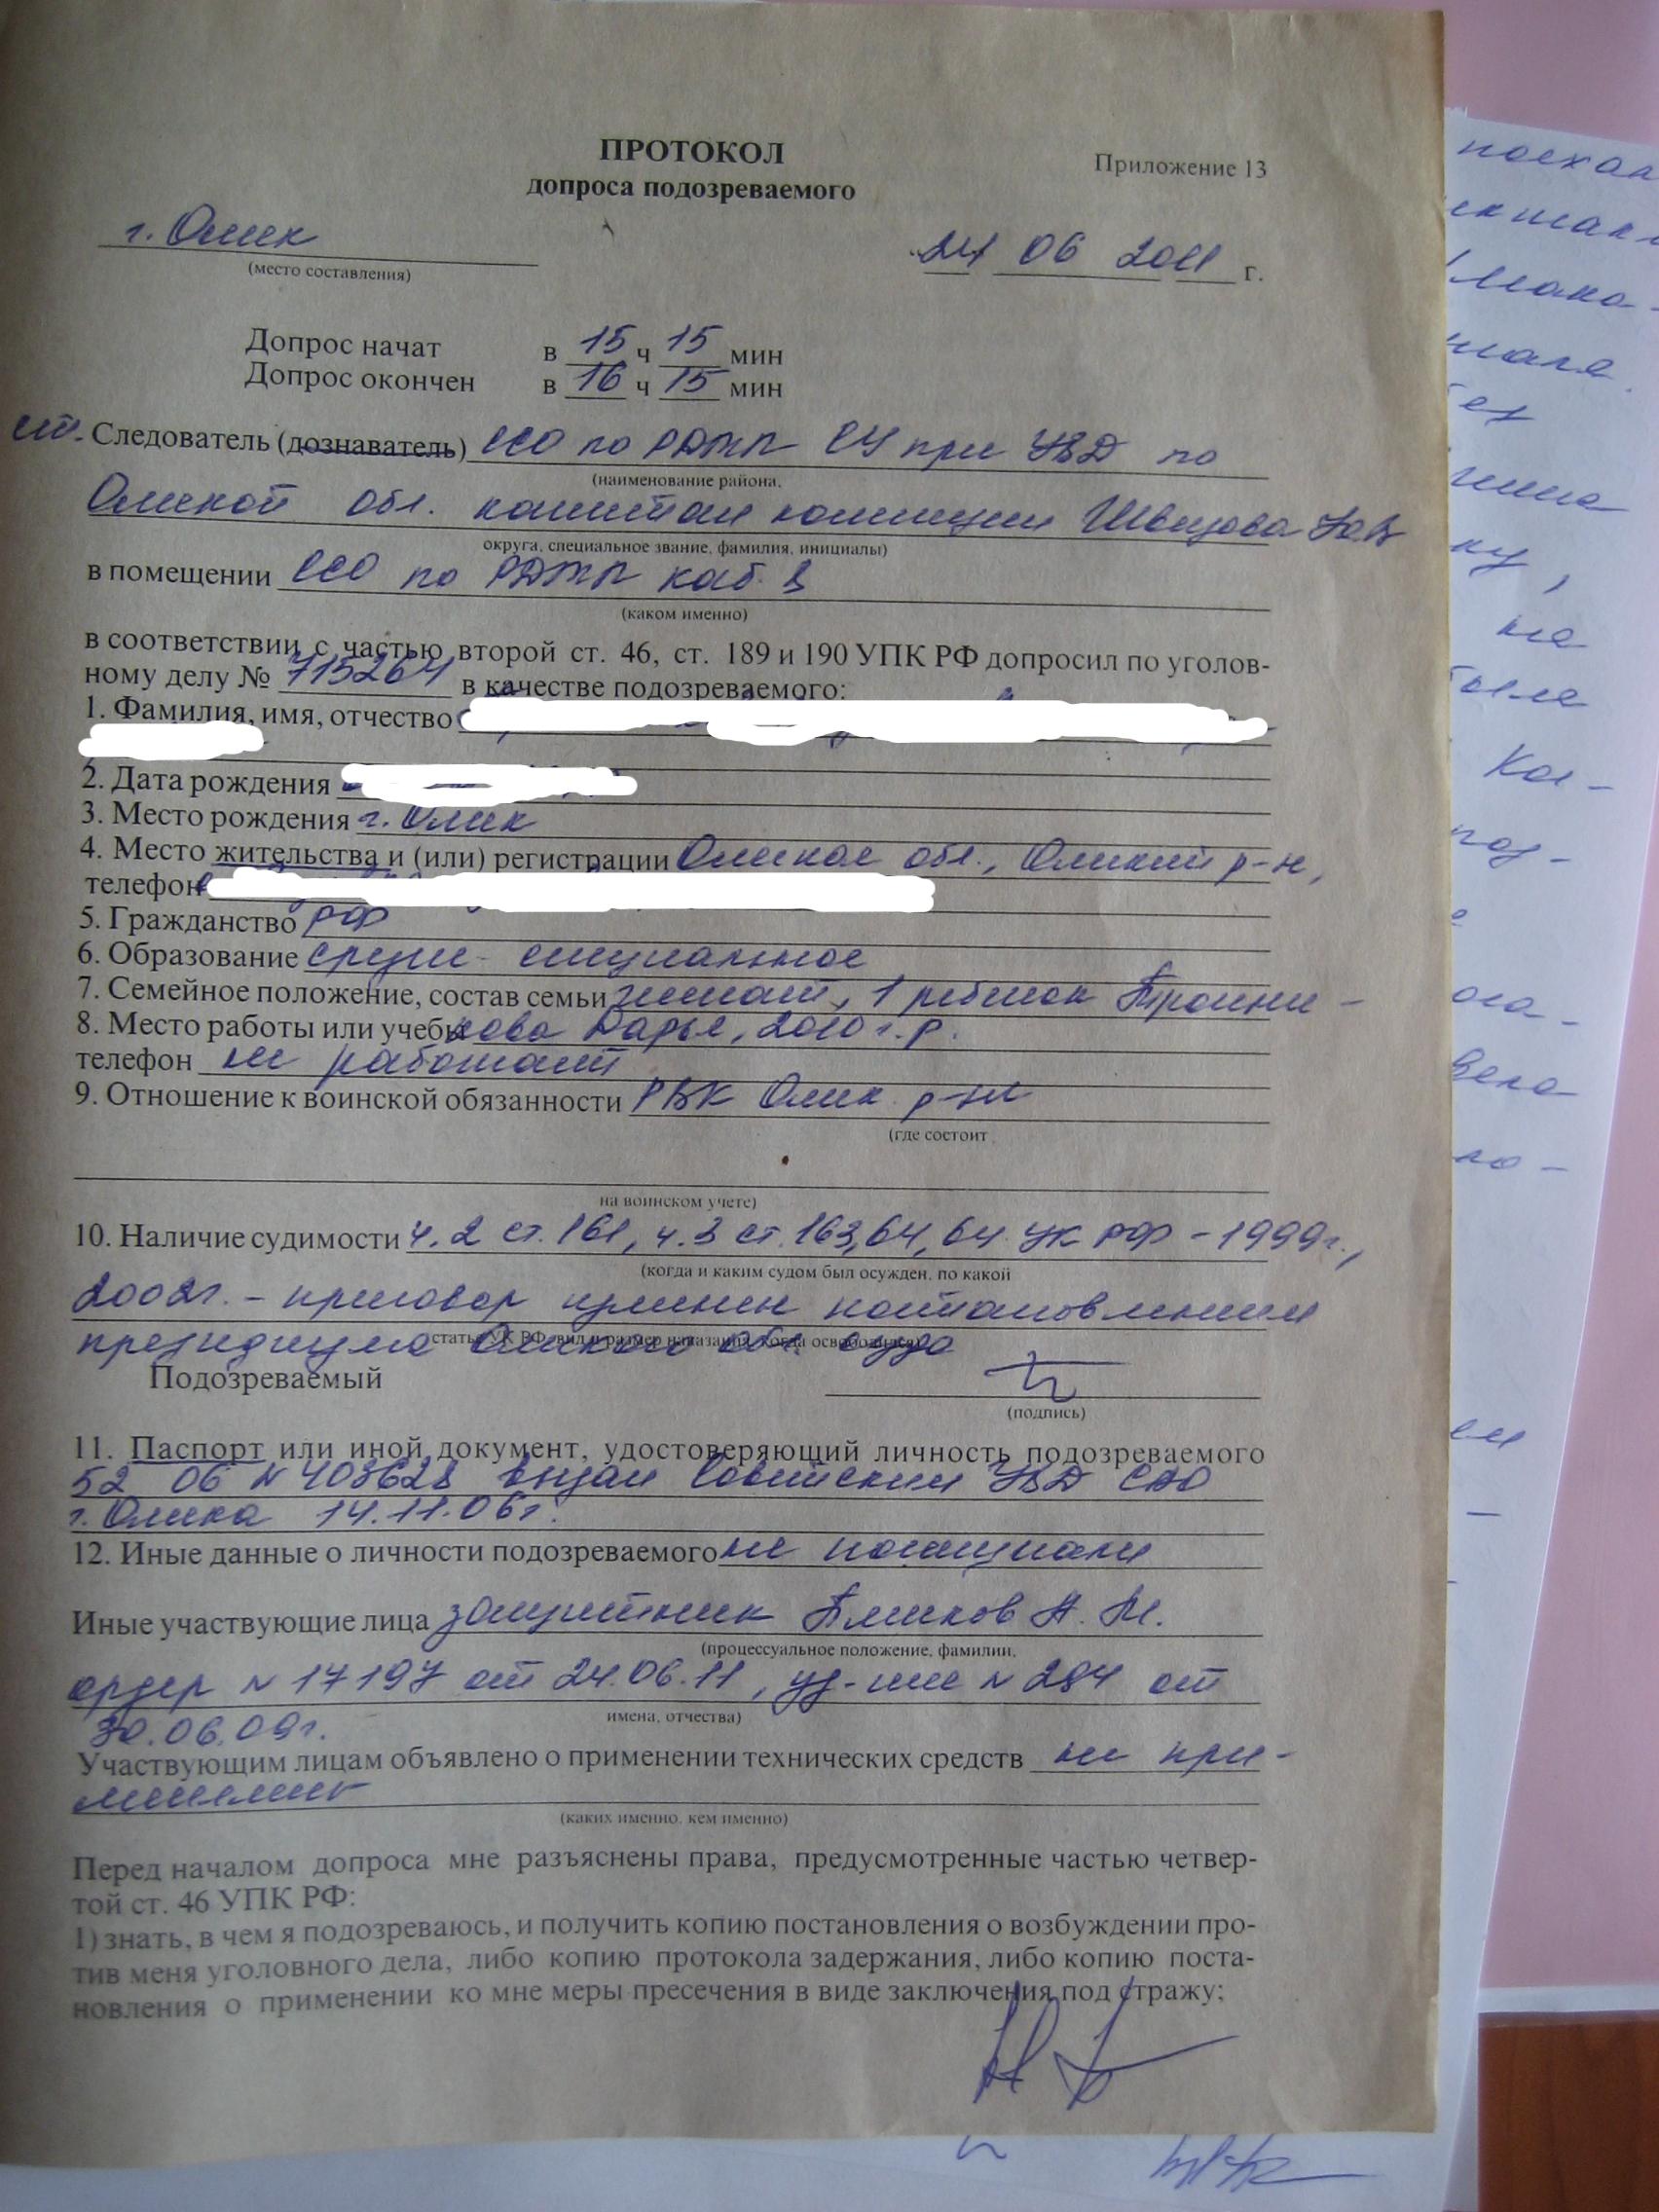 ПРОТОКОЛ
Приложение 13
допроса подозреваемого
г. Омск
24 06 2011 г.
(место составления)
Допрос начат в 15 ч 15 мин
Допрос окончен в 16 ч 15 мин
ст. Следователь (дознаватель) ССО по РДТП СУ при УВД по
(наименование района,
Омской обл. капитан юстиции Швецова Ю.В
округа, специальное звание, фамилия, инициалы)
в помещении ССО по РДТП каб. 3
(каком именно)
в соответствии с частью второй ст. 46, ст. 189 и 190 УПК РФ допросил по уголов-
ному делу № 715264 в качестве подозреваемого:
1. Фамилия, имя, отчество
2. Дата рождения
3. Место рождения г. Омск
4. Место жительства и (или) регистрации Омская обл., Омский р-н,
телефон
5. Гражданство РФ
6. Образование средне-специальное
7. Семейное положение, состав семьи женат, 1 ребенок
8. Место работы или учебы Дарья, 2010 г.р.
телефон не работает
9. Отношение к воинской обязанности РВК Омск. р-на
(где состоит
на воинском учете)
10. Наличие судимости ч. 2 ст. 161, ч. 3 ст. 163, 64, 64 УК РФ - 1999г.,
(когда и каким судом был осужден, по какой
2002г. - приговор изменен постановлением
статье УК РФ, вид и размер наказания, когда освободился)
президиума Омского обл. суда
Подозреваемый
(подпись)
11. Паспорт или иной документ, удостоверяющий личность подозреваемого
52 06 N 403628 выдан Советским УВД САО
г. Омска 14.11.06г.
12. Иные данные о личности подозреваемого не
Иные участвующие лица защитник А. М.
(процессуальное положение, фамилии,
ордер N 17197 от 24.06.11, уд-ние N 284 от
имена, отчества)
30.06.09г.
Участвующим лицам объявлено о применении технических средств не при-
менялись
(каких именно, кем именно)
Перед началом допроса мне разъяснены права, предусмотренные частью четвер-
той ст. 46 УПК РФ:
1) знать, в чем я подозреваюсь, и получить копию постановления о возбуждении про-
тив меня уголовного дела, либо копию протокола задержания, либо копию поста-
новления о применении ко мне меры пресечения в виде заключения под стражу;